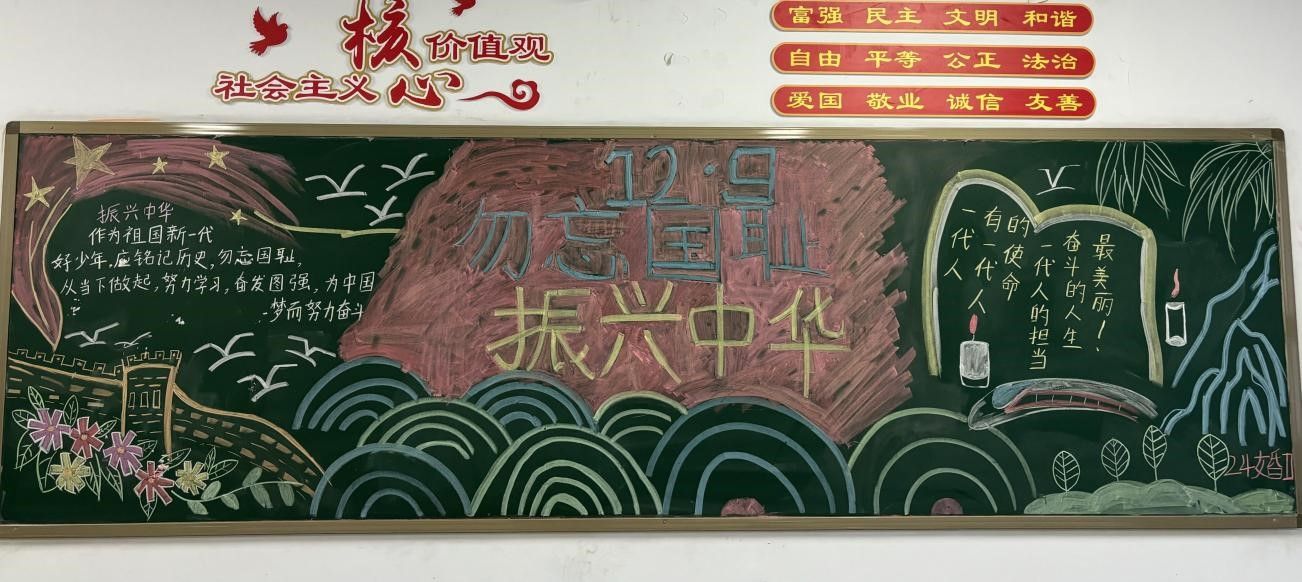 核
价值观
社会主义
心
富强 民主 文明 和谐
自由 平等 公正 法治
爱国 敬业 诚信 友善
12·9
勿忘国耻
振兴中华
振兴中华
作为祖国新一代
好少年,应铭记历史,勿忘国耻,
从当下做起,努力学习,奋发图强,为中国
梦而努力奋斗
最美丽!
奋斗的人生
一代人的担当
的使命
有一代人
一代人